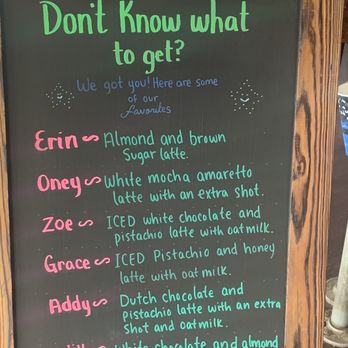 Don't Know what
to get?
We got you! Here are some
of our
favorites
Erin ~ Almond and brown
Sugar latte.
Oney ~ White mocha amaretto
latte with an extra shot.
Zoe ~ ICED white chocolate and
pistachio latte with oatmilk.
Grace ~ ICED Pistachio and honey
latte with oatmilk.
Addy ~ Dutch chocolate and
pistachio latte with an extra
shot and oatmilk.
White chocolate and almond